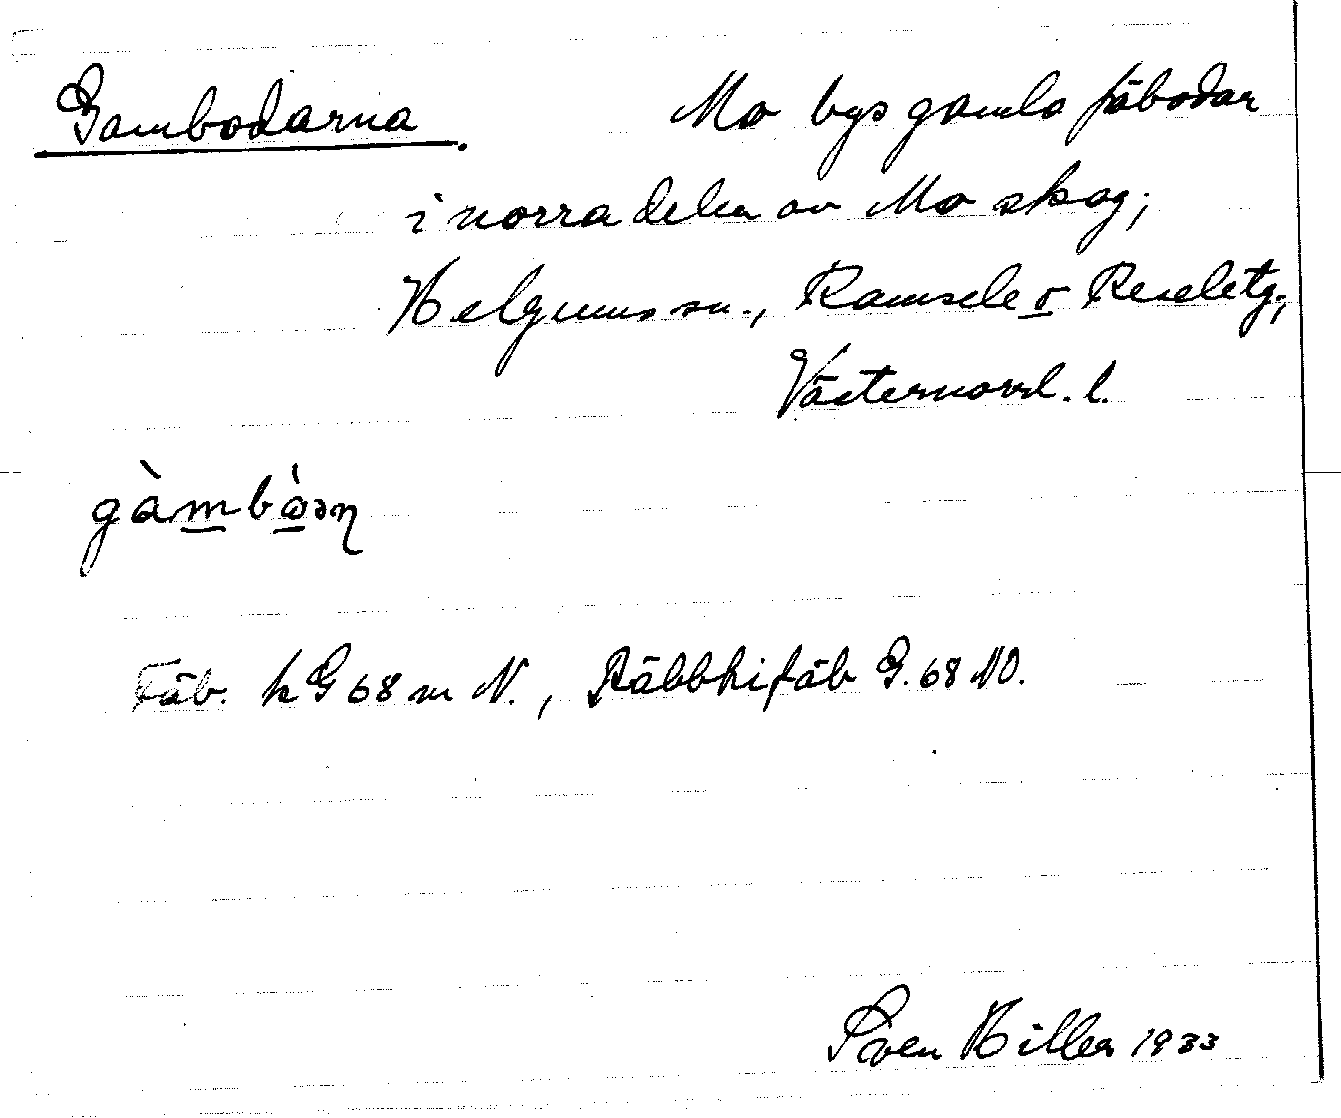 Gambodarna. Mo bys gamla fäbodar
i norra delen av Mo skog;
Helgums sn., Ramsele o Reseletg;
Västernorrl. l.
gàmbòən
Fäb. k G 68 m N., fäb G. 68 NO.
Sven Hiller 1933